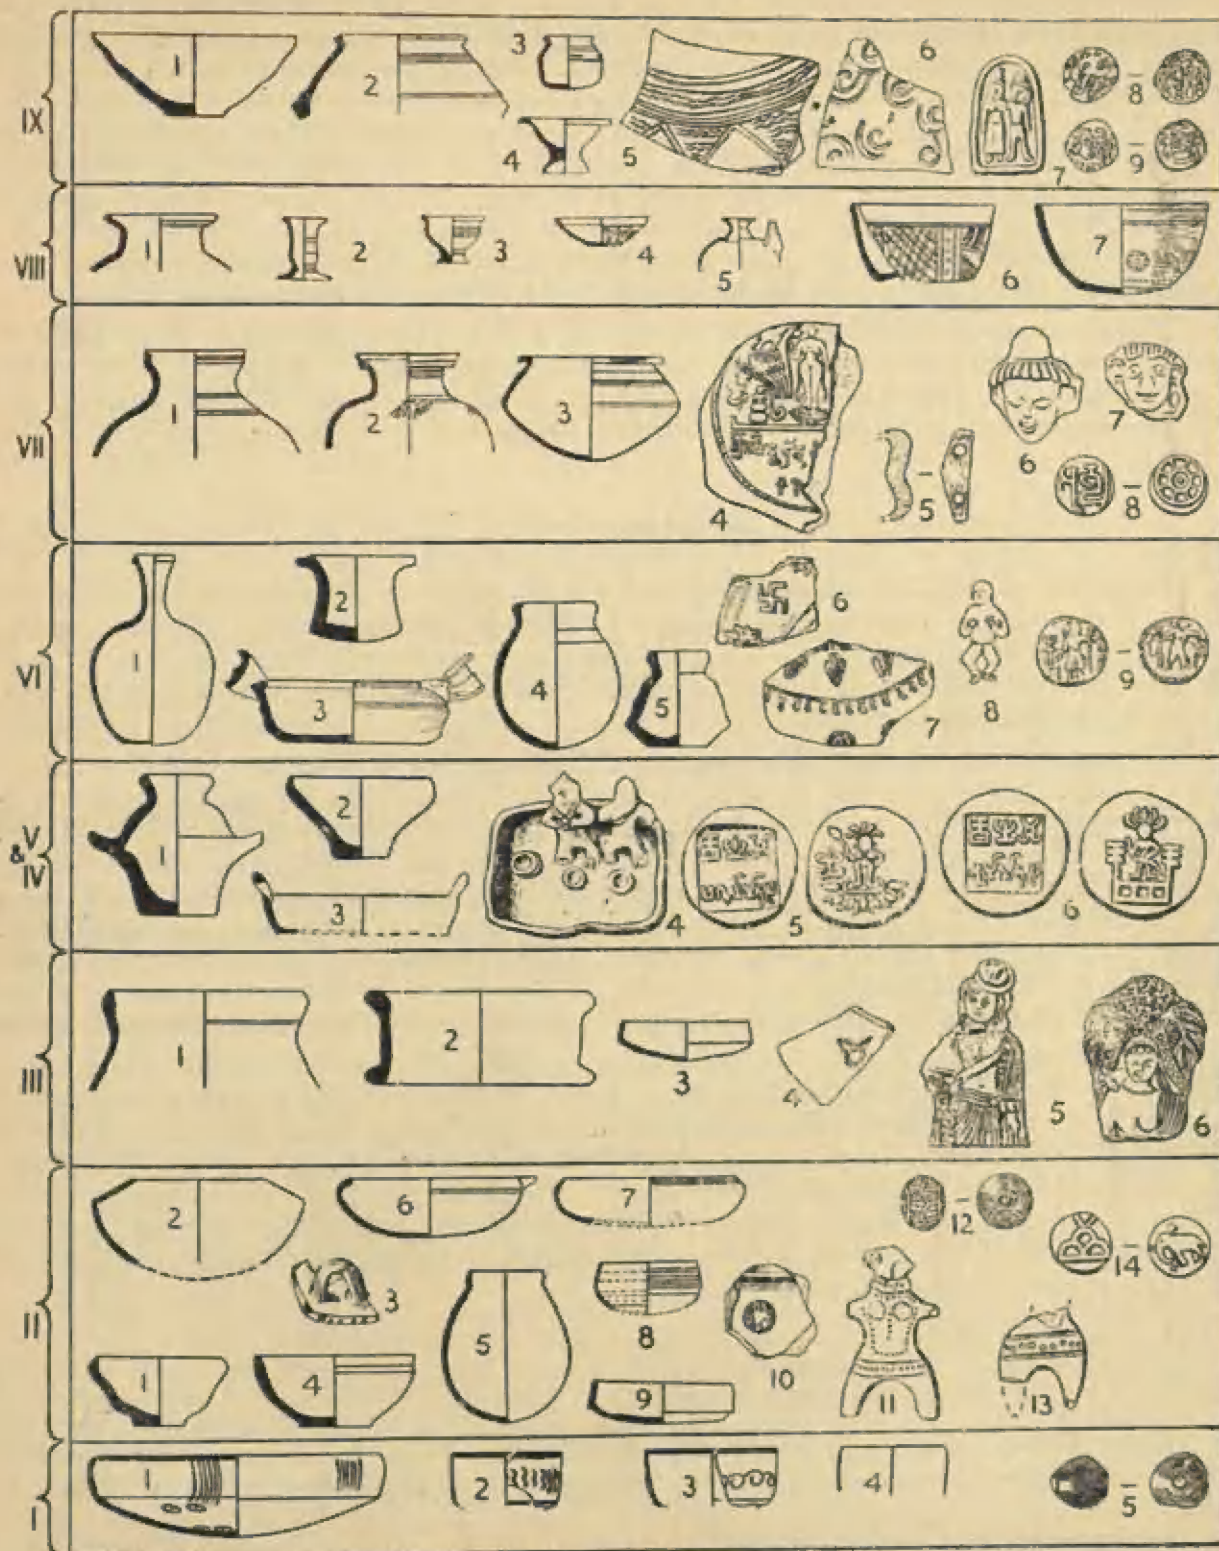 IX
1 2 3 4 5 6 7 8 9
VIII
1 2 3 4 5 6 7
VII
1 2 3 4 5 6 7 8
VI
1 2 3 4 5 6 7 8 9
V & IV
1 2 3 4 5 6
III
1 2 3 4 5 6
II
2 6 7 12 14
3 5 8 10
1 4 9 11 13
I
1 2 3 4 5